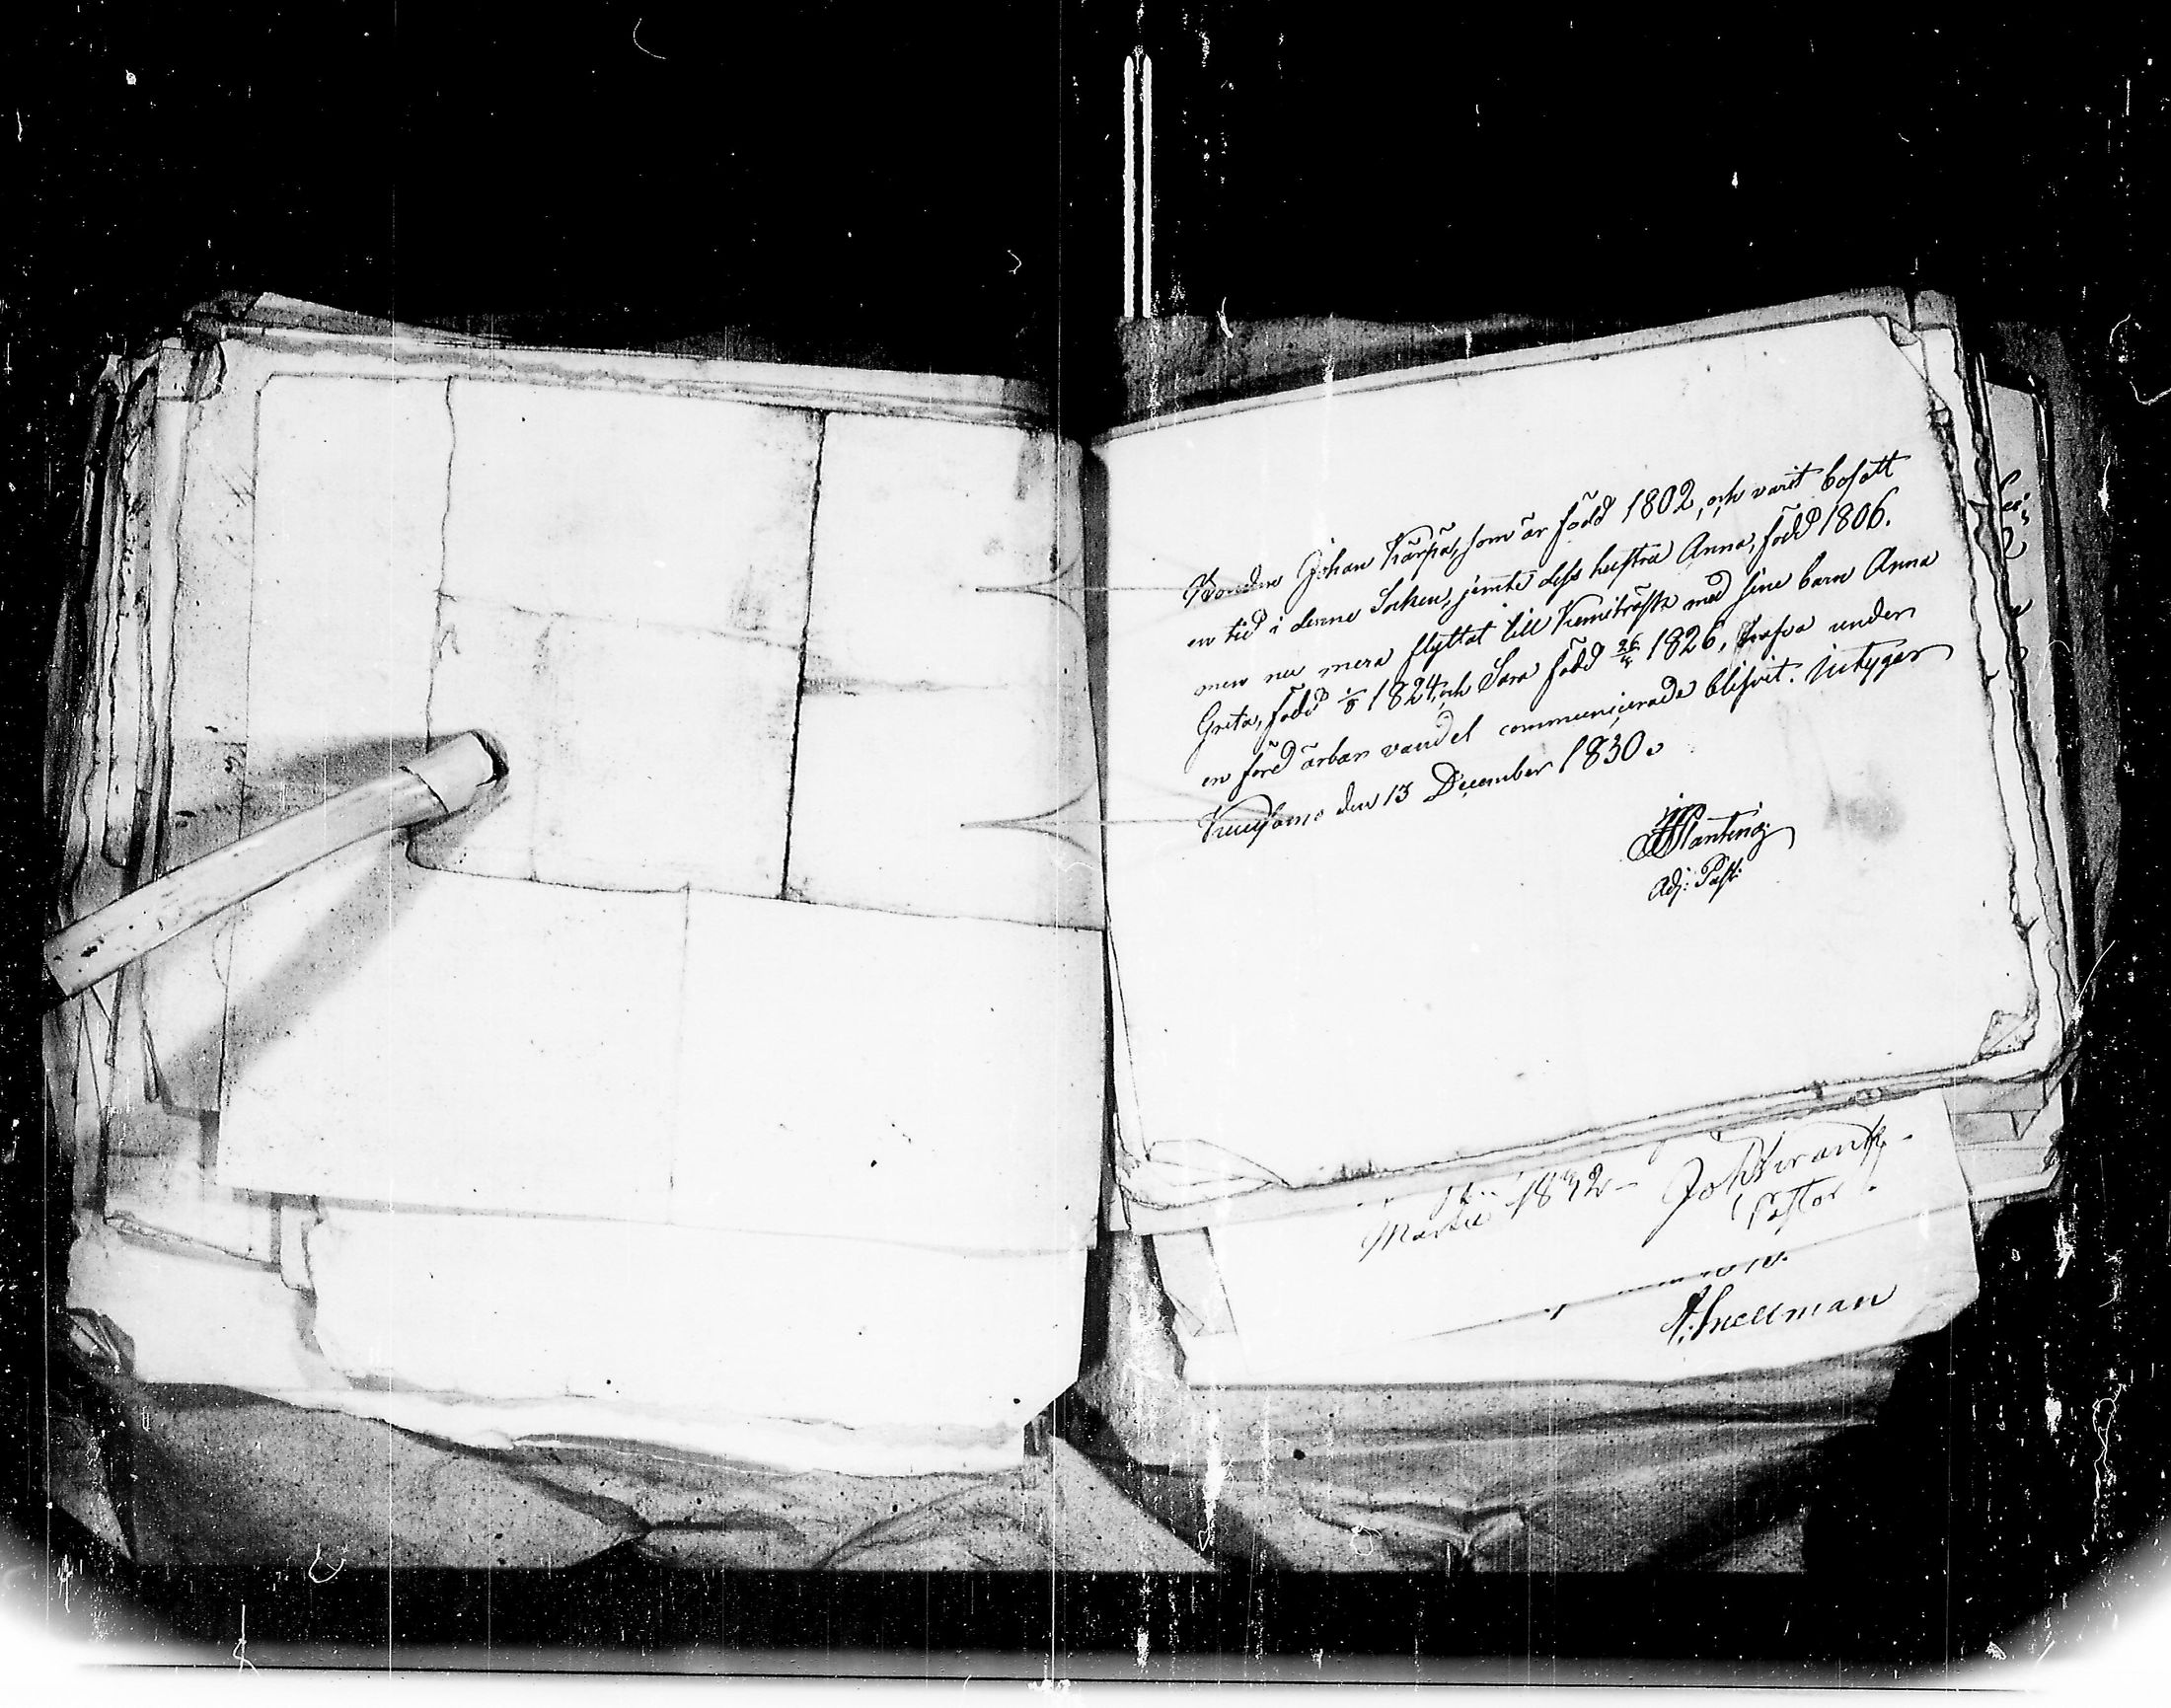 Bonden Johan Kärpä, som är född 1802, och varit bosatt
en tid i denne Socken, jemte dess hustru Anna, född 1806.
men nu mera flyttat till Kemiträsk med sine barn Anna
Greta, född 1/8 1824, och Sara född 26/4 1826, hafva under
en förd ärbar vandel communicerade blifvit. Intygar
Kuusamo den 13 December 1830.
Planting
Adj: Past:
Martii 1832 - Joh Wirank -
Pastor.
Snellman